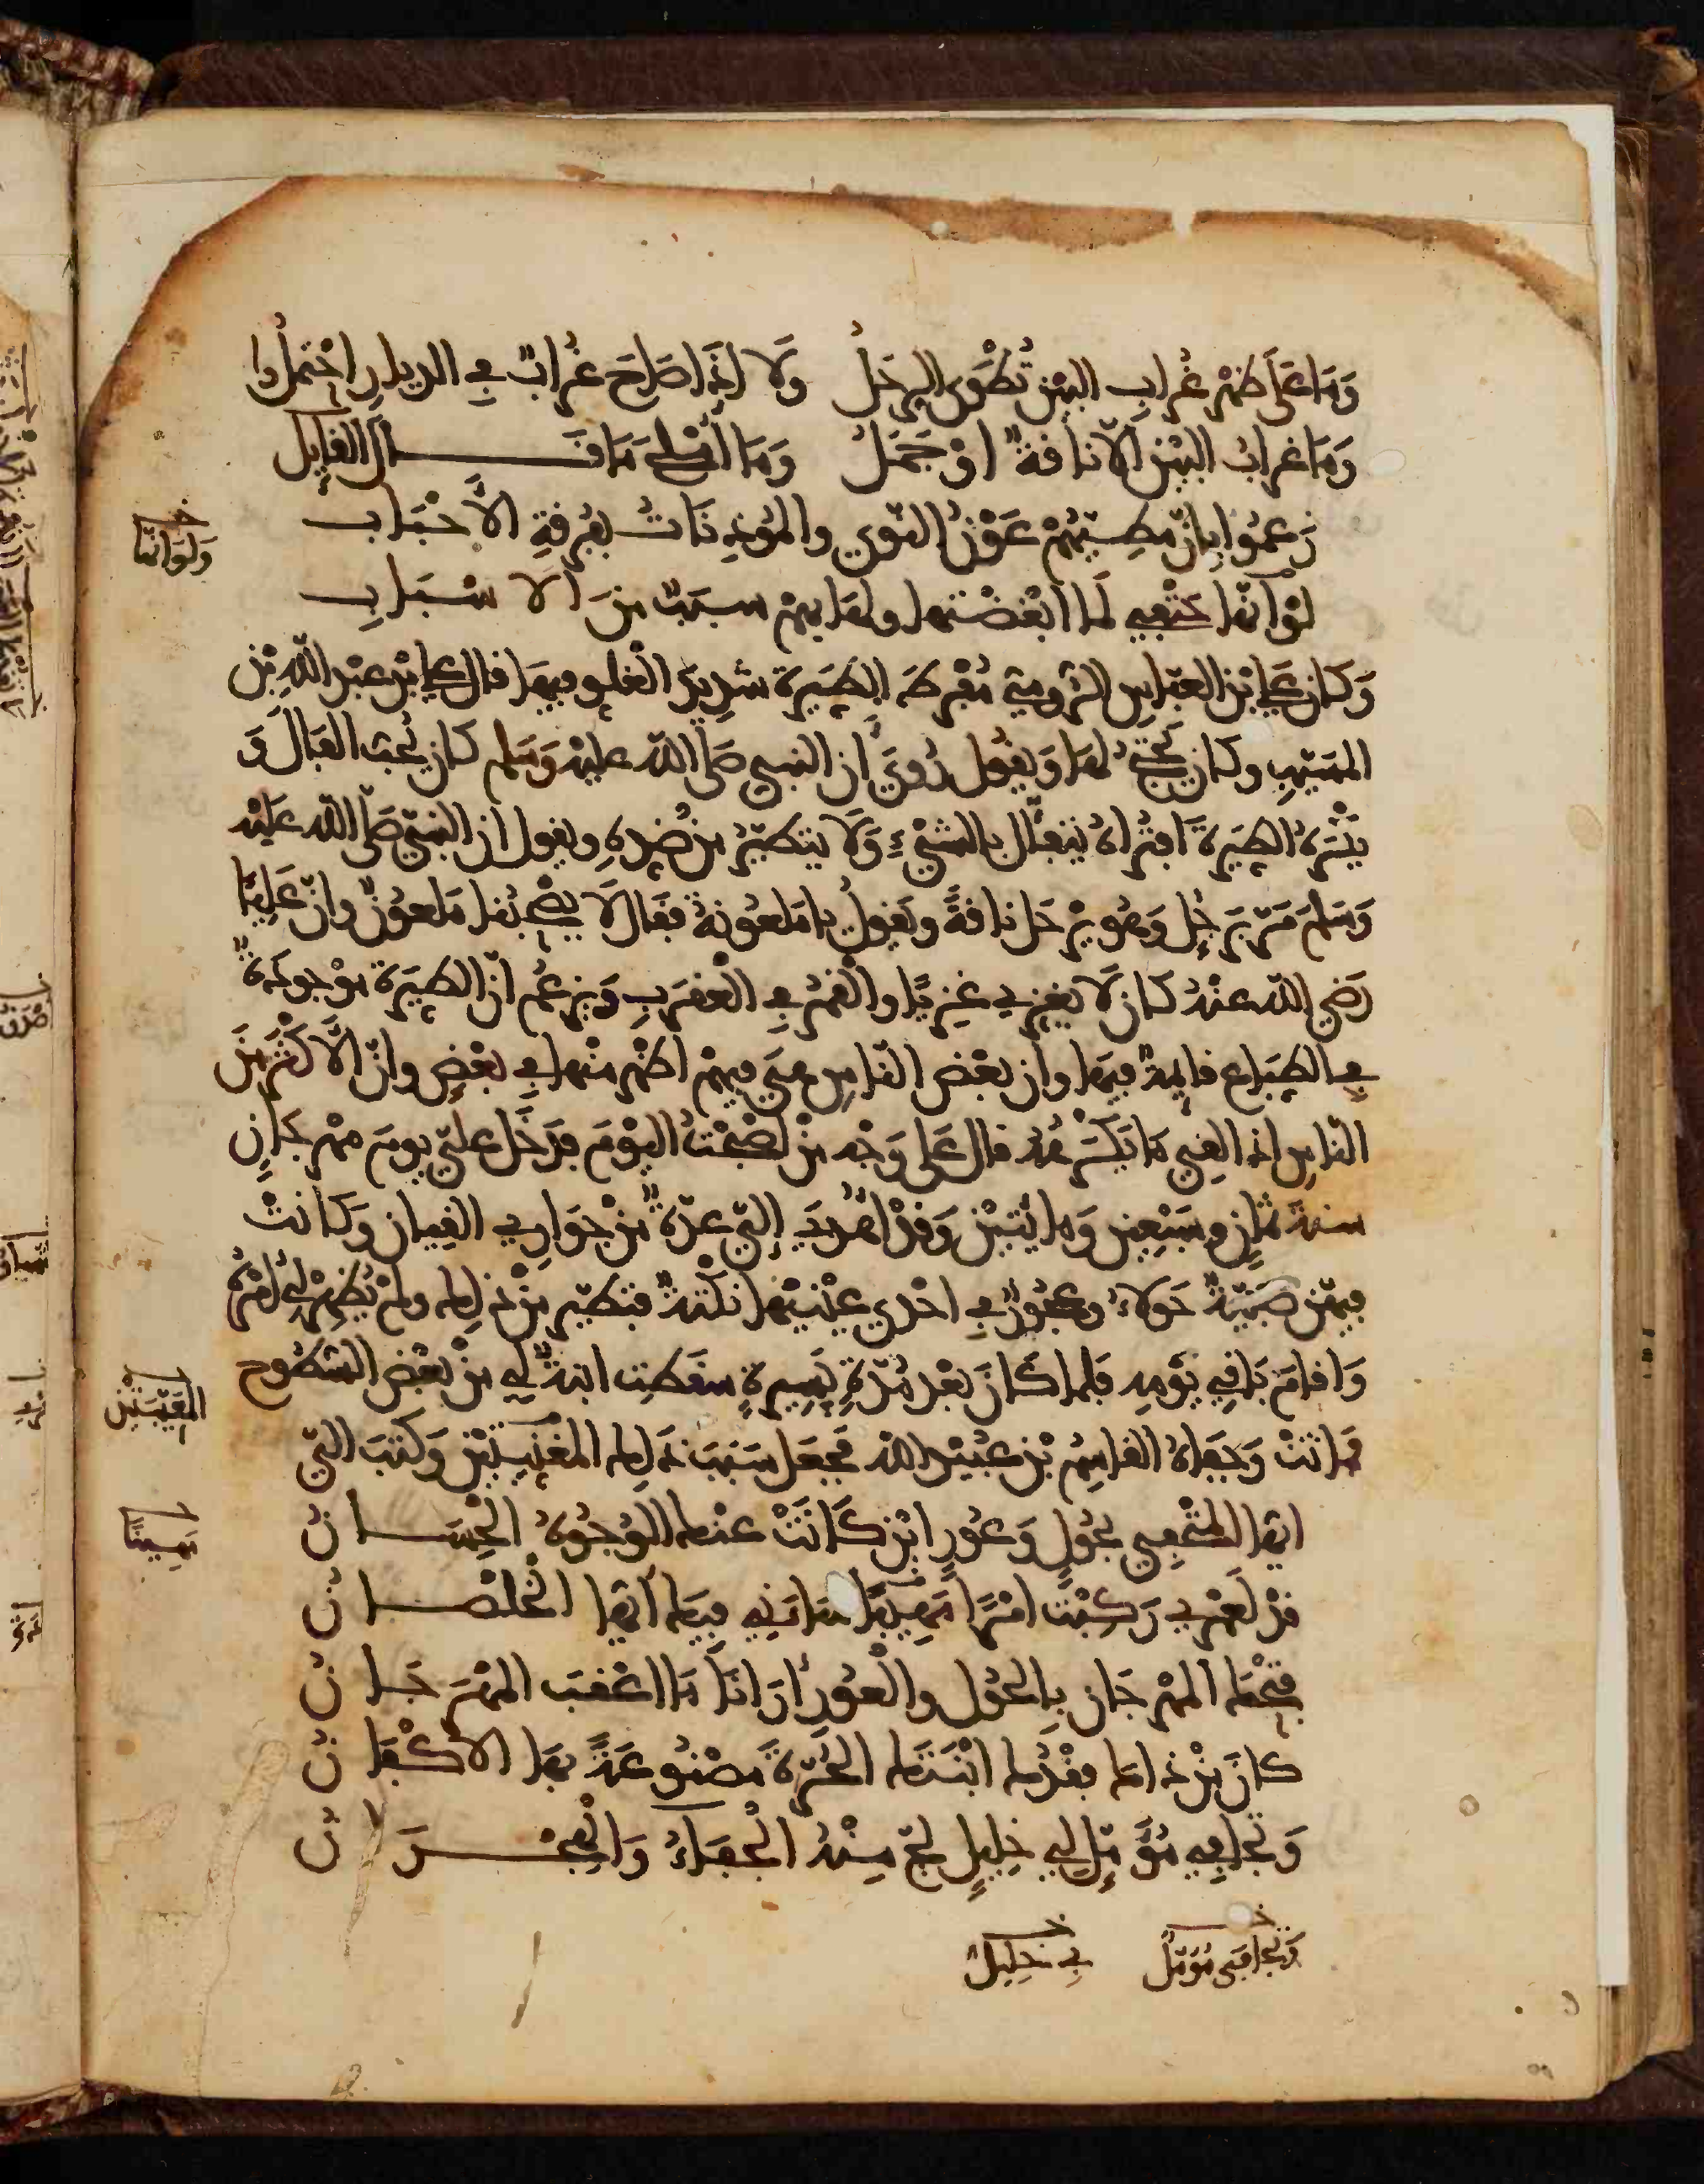 وَمَا عَلَى ظَهْرِ غُرَابِ البَيْنِ تُطْوَى الرِّحَلُ وَلَا إذَا صَاحَ غُرَابٌ فِي الديارِ احْتَمَلُوا
وَمَا غرابُ البَيْنِ إلّا نَاقةٌ اوْ جَمَلُ وَمَا أمْلَحَ مَا قَــال القايِل
زَعمُوا بِانّ مَطِيّهُمْ عَوْنُ النّوى والمُوذِنَاتُ بفُرقةِ الأحْبَاب
وَلَوَ انّها
لوْ انّها حَتْفِي لَمَا ابْغَضْتها ولها بهمْ سببٌ منَ الاسْبَابِ
وَكان علي ابْن العبّاس الرُّومِيّ مُفْرِط الطِّيَرة شَدِيدَ الغلو فيهَا قال علي ابْن عبْد اللّهِ بْن
المسَيّبِ وكان يحْتجّ لها وَيقُول رُوِيَ أن النبي صَلّى اللّه عليْه وَسَلم كان يُحِبّ الفَالَ وَ
يَكْرَهُ الطِّيَرةَ افتُراهُ يتفَأّل بالشّيْءِ وَلَا يتطيّرُ من ضِدِهِ ويقول ان النبيّ صَلّى اللّه عَلَيْه
وَسَلمَ مَرّ بِرَجُلٍ وَهُو يرْحَل ناقةً ويَقولُ يا مَلعُونةُ فقَال لَا يصْحبُنا مَلعُونٌ وانّ عَلِيًّا
رَضِي اللّه عنْهُ كان لَا يغزِي غزِيًّا والقَمْرُ فِي العقرَبِ وَيزعُم انّ الطِّيَرَة موْجودَةٌ
فِي الطِّبَاعِ قايِمةٌ فيهَا وان بعْض النّاسِ هِيَ فيهمْ اظْهر منْها فِي بعْضٍ وانّ الأكْثَرَ منَ
النّاسِ إذا لقِي مَا يَكرَهُه قال علَى وَجْه مَنْ اصْبَحْتُ اليَوْمَ فدَخَل عليّ يومَ مهْرجانِ
سنة ثمانٍ وسَبْعِين وَمايتيْن وَقدْ اهْدِيَ إليّ عدّةٌ مّن جَوَارِي القِيان وَكانتْ
فيهنّ صَبيّةٌ حَولاءُ وعجُوزٌ فِي احْدى عيْنيْها نكْتةٌ فتطيّر منْ ذلِك ولمْ يُظْهِرْ لِي أمْرَهُ
وَاقامَ بَاقِي يَوْمِه فلما كَانَ بعْد مُدّةٍ يَسِيرةٍ سقَطت ابنةٌ لي من بعْض السّطُوح
المعِيبَتَيْن
فَماتتْ وَجفاهُ القاسِمُ بْن عُبيْد اللّه فجعَل سَبَبَ ذَلِك المغَنّيتيْن وَكتبَ اليّ
ايّها المتْحِفِي بحُولٍ وَعُورٍ ايْن كَانَتْ عنْك الوُجُوهُ الحِسَــانُ
مَهِينًا
قدْ لَعَمْرِي رَكِبْتَ امْرًا مَهِينًا سَاءَنِي فيكَ ايّها الخُلْصَــانُ
فتْحُك المهْرجان بِالحُولِ والعُورِ أرَانَا مَا اعْقبَ المهْرَجَــانُ
كانَ منْ ذاكَ فقْدُك ابْنتَك الحُرّةَ مَصْبُوغةً بهَا الأكْفَانُ
وَتجافِي مُؤَمّلٍ لِي خليلٍ لجّ منْهُ الجَفَاءُ وَالهِجْــرَانُ
وَتجَافَى مُؤَمَّلٌ لِي خليلٌ